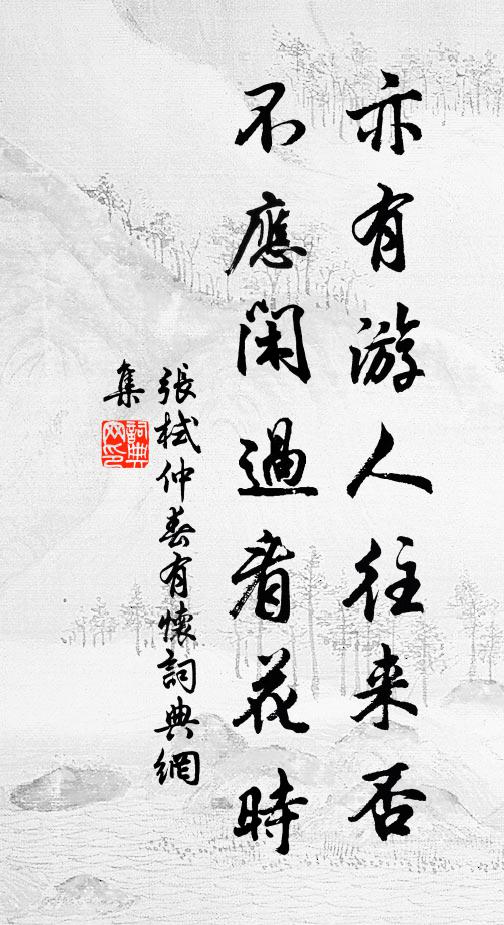 亦有游人往来否
不應閑過看花時
張栻仲春有懷詞典網
集
詞典
网印